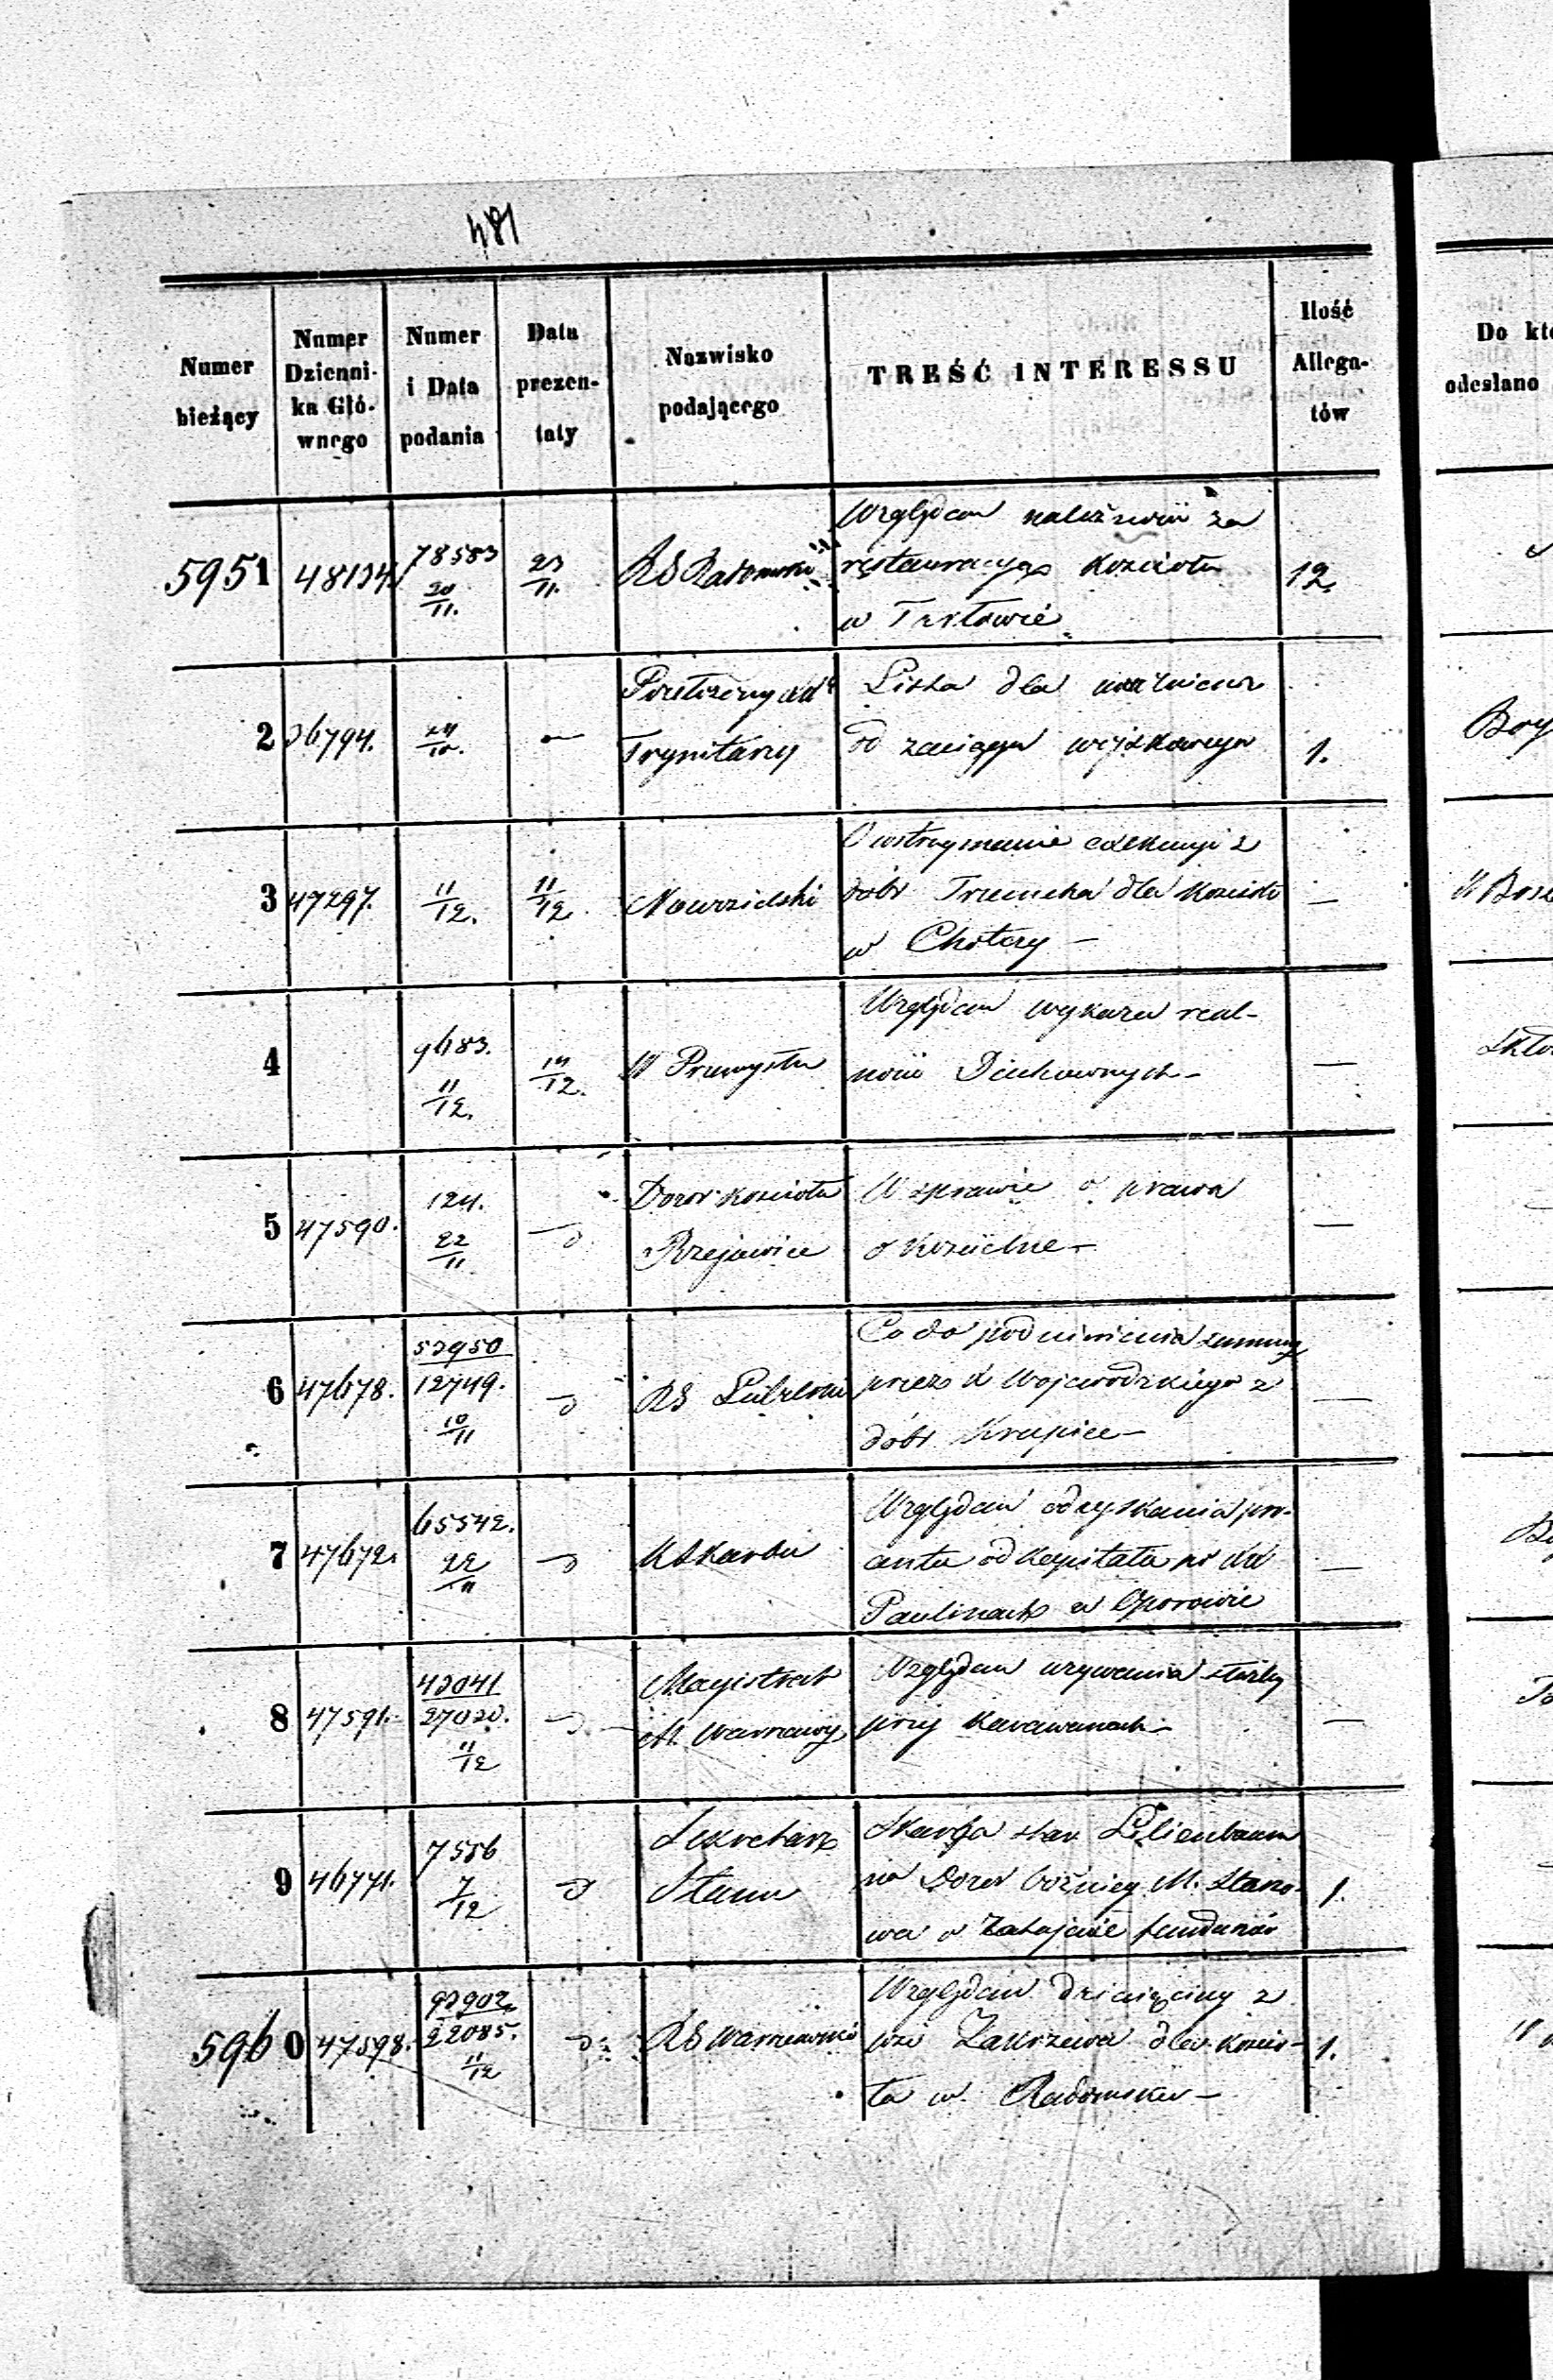 481
Numer bieżący
Numer Dzienni- ka Głó- wnego
Numer i Data podania
Data prezen- taty
Nazwisko podającego
TREŚĆ INTERESSU
Ilość Allega- tów
Do
odesłano
5951 48134 78583 20/11. 23/11. RS Radomski Względem należności za 12.
restauracyą kościoła
w
2 36794. 24/10. Lista dla
Trynitarzy od zaciągu wojskowego 1.
3 47297. 11/12. 11/12. Nawrzielski O wstrzymanie exekucyi z
dóbr dla kościoła —
w Chotczy —
4 9683. 11/12. 14/12. W Przemysłu Względem wykazu real-
ności Duchownych — —
5 47590. 124. 22/11 Dozór kościoła W sprawie o prawa
o kościelne — —
6 47678. 52950 12749. 10/11 RS Lubelski Co do podniesienia summy
przez W Wojewódzkiego z
dóbr Krupice —
7 47672. 65542. 22/11 W Skarbu Względem odzyskania pro-
centu od kapitału po XX
Paulinach w Oporowie
8 47591. 42041 27020. 11/12 Magistrat Względem używania
M. Warszawy przy karawanach —
9 46771. 7556 7/12 Sekretarz Skarga star. Lilienbaum
Stanu na Dozór bóżniczy M. Stano- 1.
wa o zatajenie funduszów
5960 47598. 92902 22085. 11/12 RS Warszawski Względem dziesięciny z
wsi Zakrzewa dla kościo- 1.
ła w Radomsku —